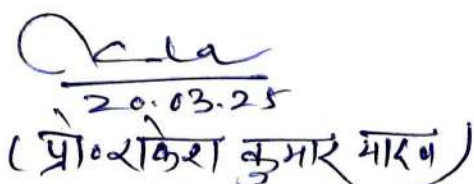 20.03.25
(प्रो० राकेश कुमार यादव)